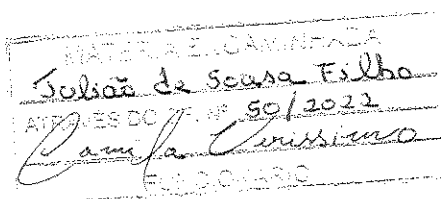 MATÉRIA ENCAMINHADA
Julião de Sousa Filho
ATRAVÉS DO OF. Nº 50/2022
Camila Verissimo
FUNCIONÁRIO